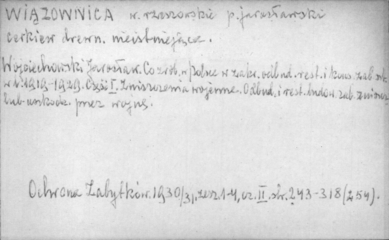 WIĄZOWNICA w. rzeszowskie p. jarosławski
cerkiew drewn. nieistniejąca.
Wojciechowski Jarosław. Co zrob. w Polsce w zakr. odbud. rest. i kons. zab. szt.
w l. 1919-1929. Część I. Zniszczenia wojenne. Odbud. i rest. budow. zab. zniszcz.
lub uszkodz. przez wojnę.
Ochrona Zabytków. 1930/31, zesz. 1-4, cz. II. str. 243-318 (254).